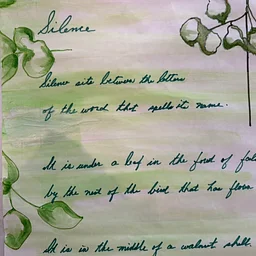 Silence
Silence sits between the letters
of the word that spells its name.
It is under a leaf in the food of
by the nest of the bird that has
It is in the middle of a walnut shell.